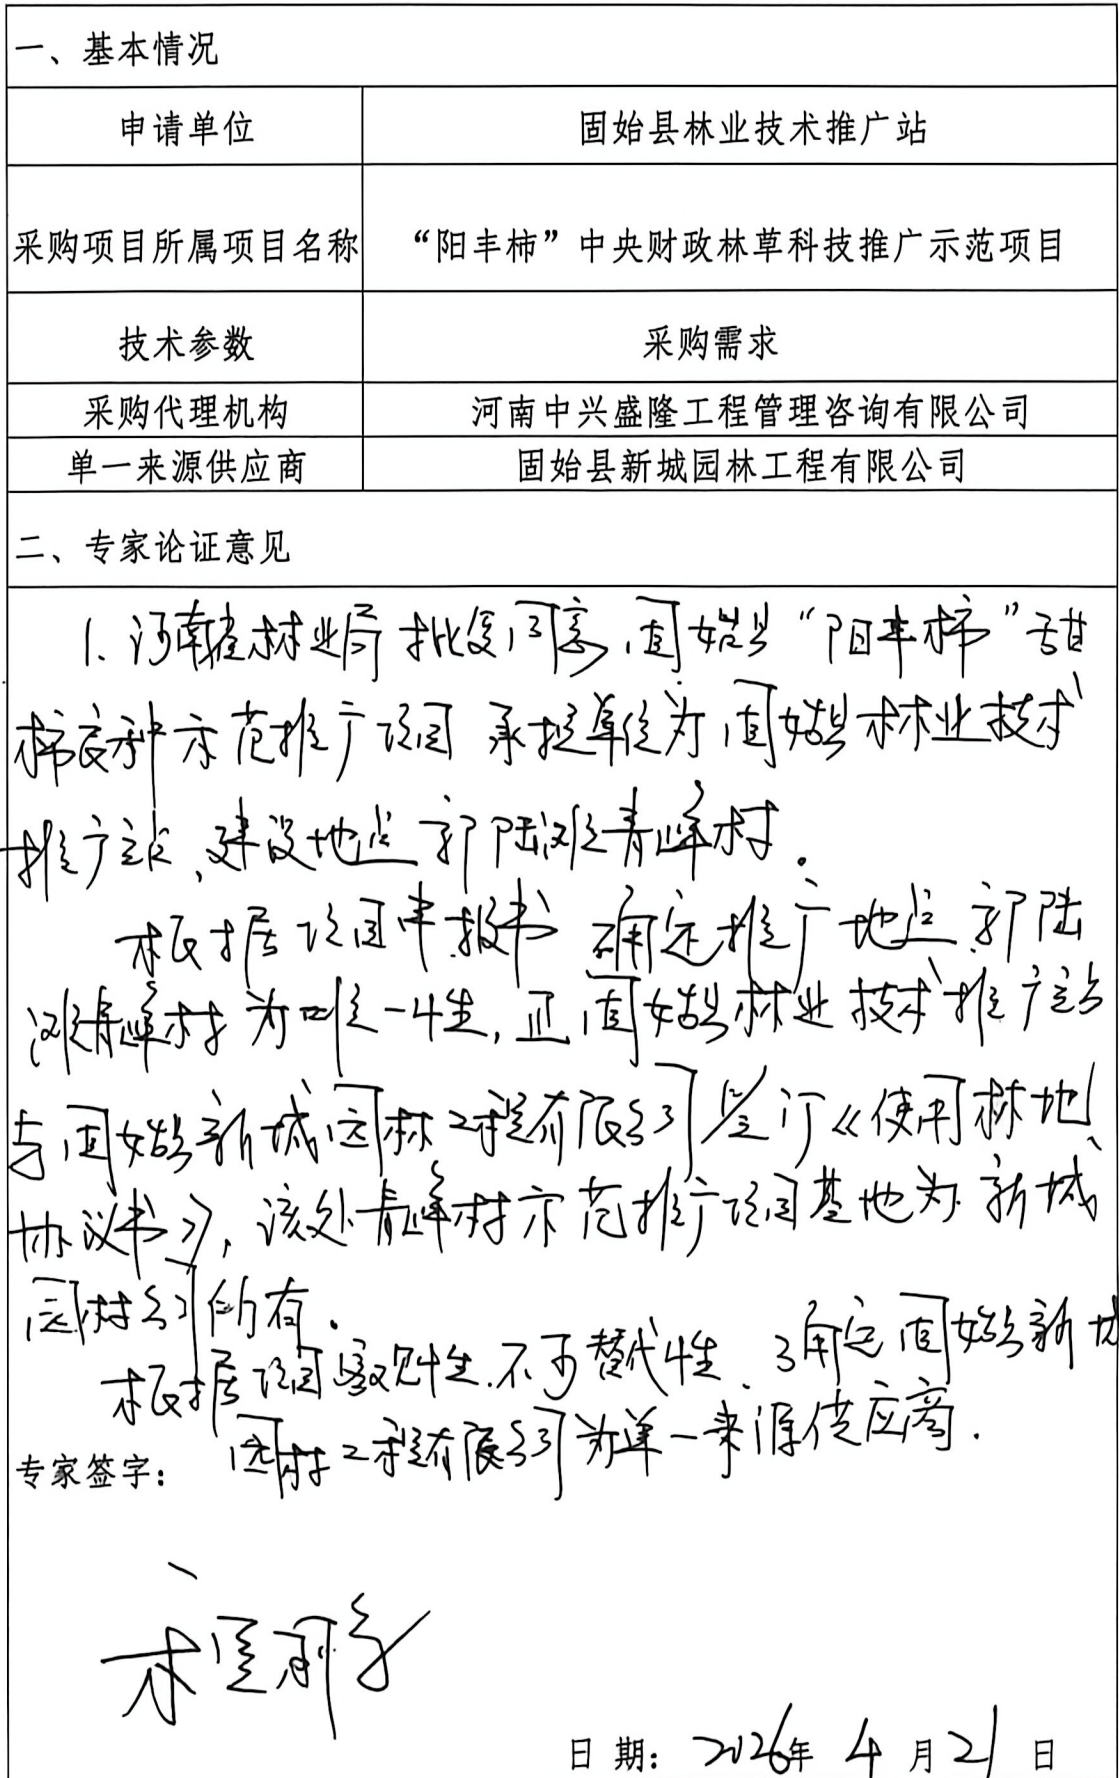 一、基本情况
申请单位 固始县林业技术推广站
采购项目所属项目名称 “阳丰柿”中央财政林草科技推广示范项目
技术参数 采购需求
采购代理机构 河南中兴盛隆工程管理咨询有限公司
单一来源供应商 固始县新城园林工程有限公司
二、专家论证意见
1. 河南省林业局批复同意,固始县“阳丰柿”甜
柿良种示范推广项目承担单位为固始县林业技术
推广站,建设地点郭陆滩青峰村。
根据项目申报书 确定推广地点郭陆
滩青峰村为唯一性,且固始县林业技术推广站
与固始新城园林工程有限公司签订《使用林地
协议书》,该处青峰村示范推广项目基地为新城
园林公司所有.
根据项目客观性.不可替代性.确定固始新城
园林工程有限公司为单一来源供应商.
专家签字:
日期: 2026年 4月 21 日